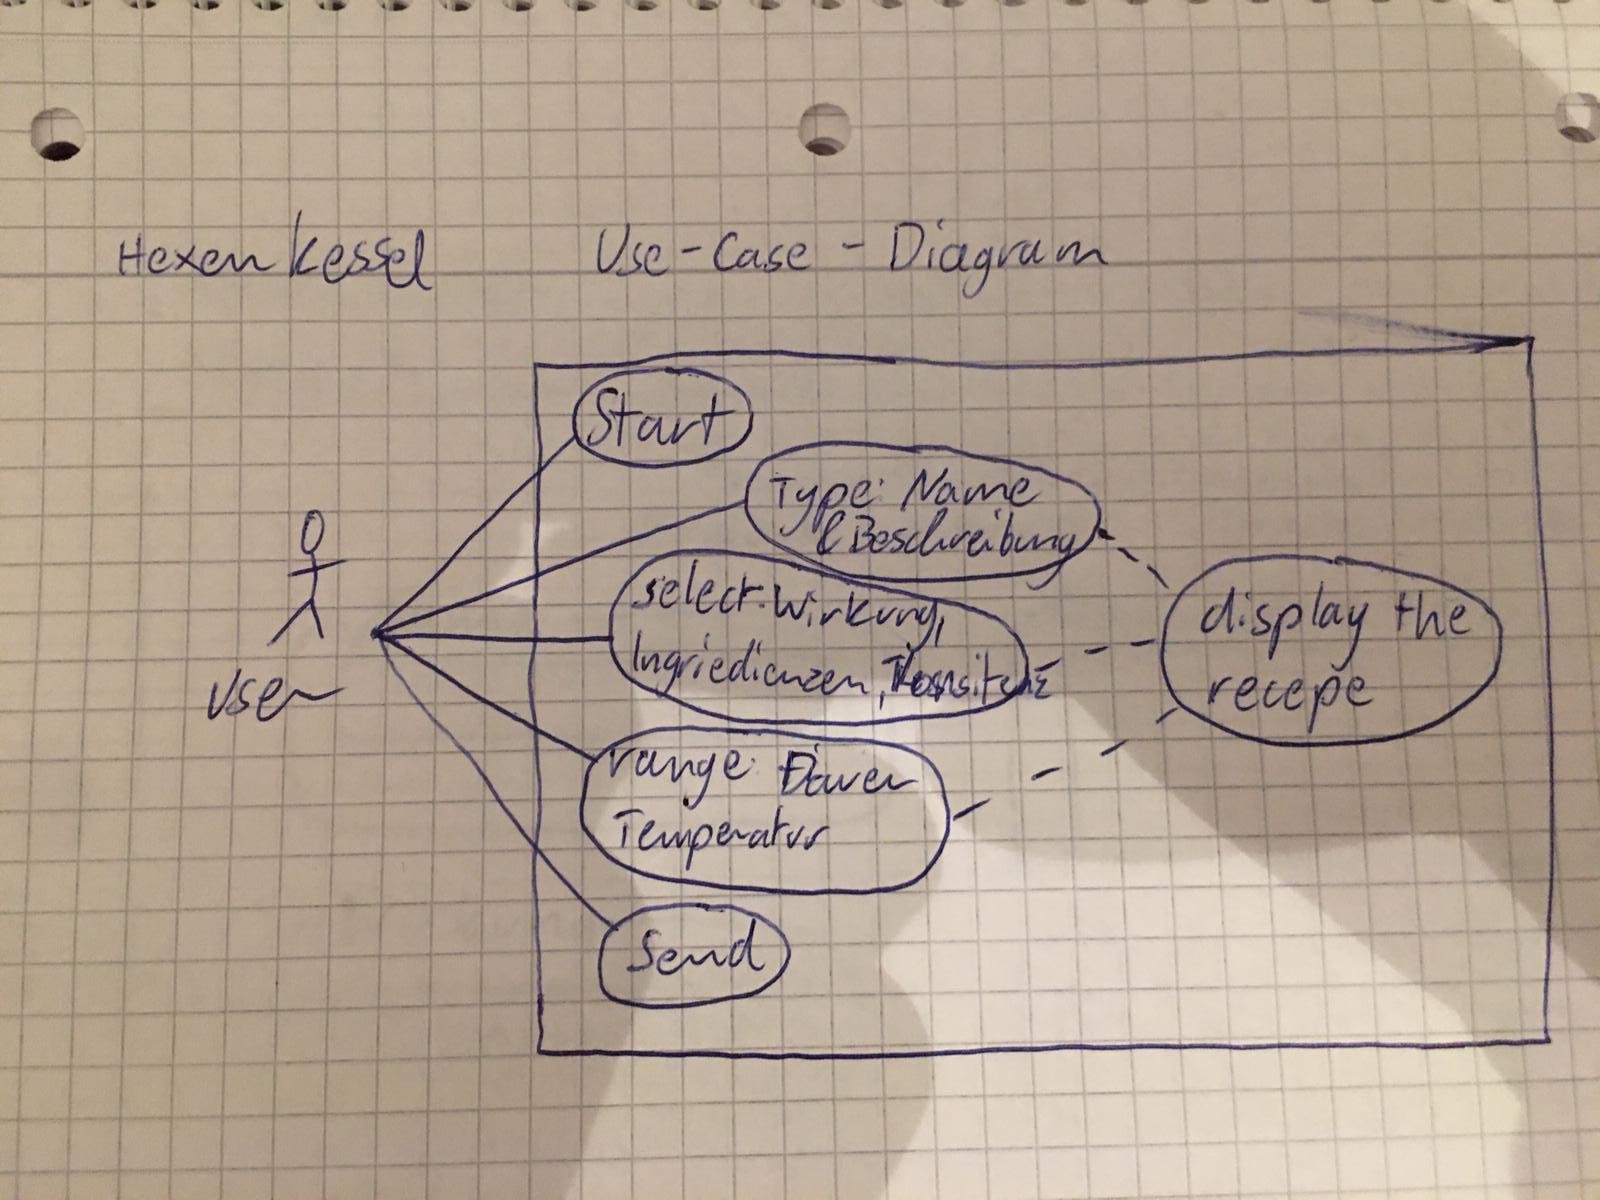 Hexenkessel
Use-Case-Diagram
Start
Type: Name
& Beschreibung
select: Wirkung,
Ingriedienzen,
range: Dauer
Temperatur
Send
display the
recepe
User